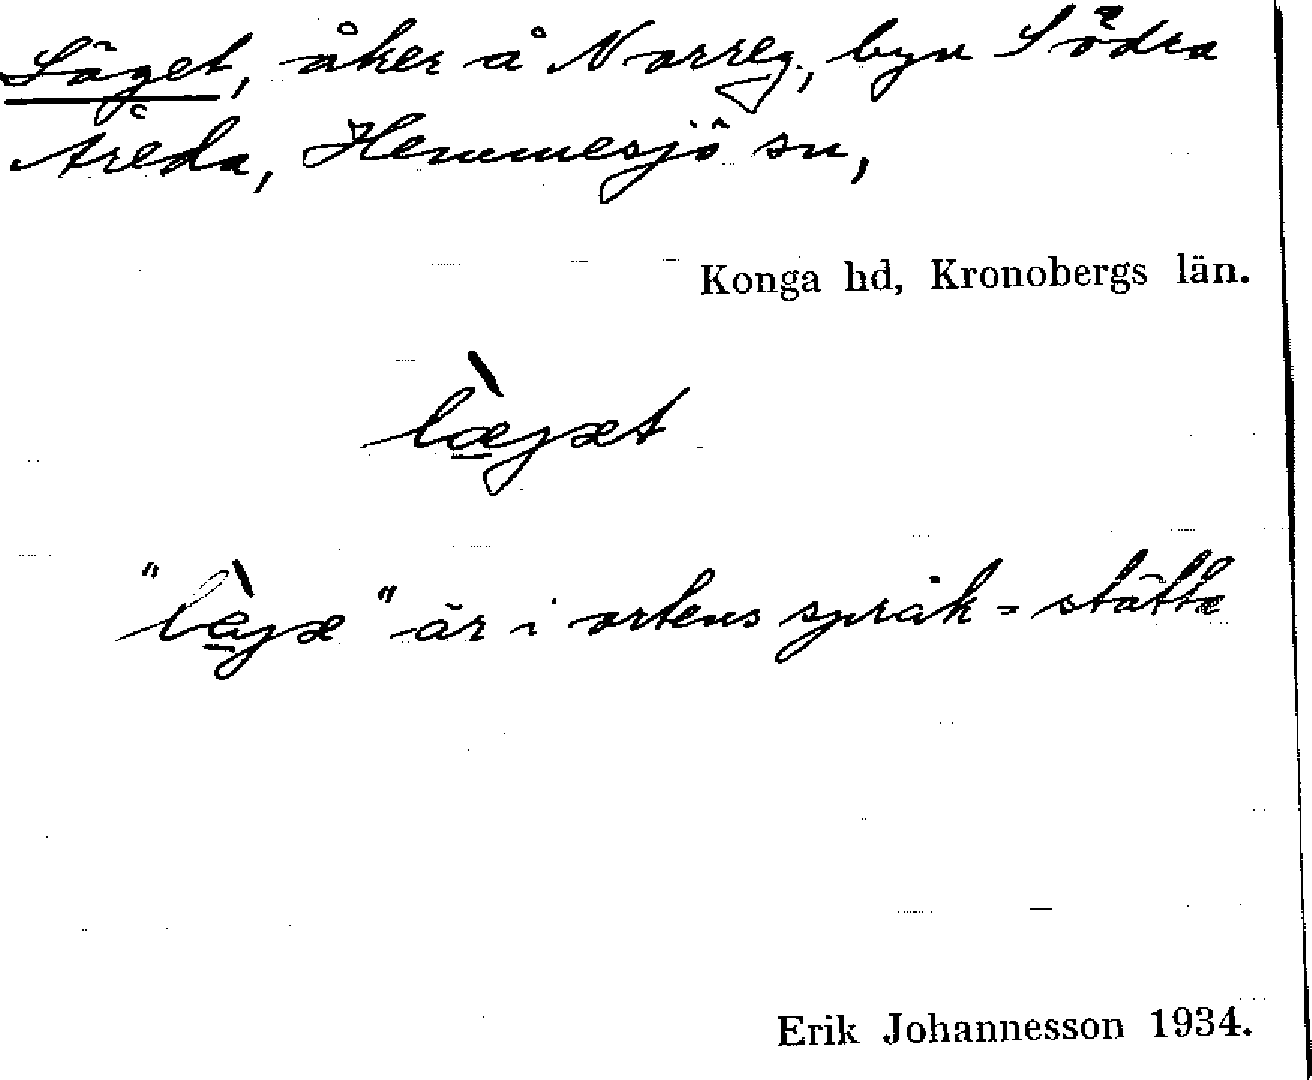 Läget, åker å Norreg., byn Södra
Åreda, Hemmesjö sn,
Konga hd, Kronobergs län.
læ̀gæt
"læ̀gæ" är i ortens språk = stätta
Erik Johannesson 1934.